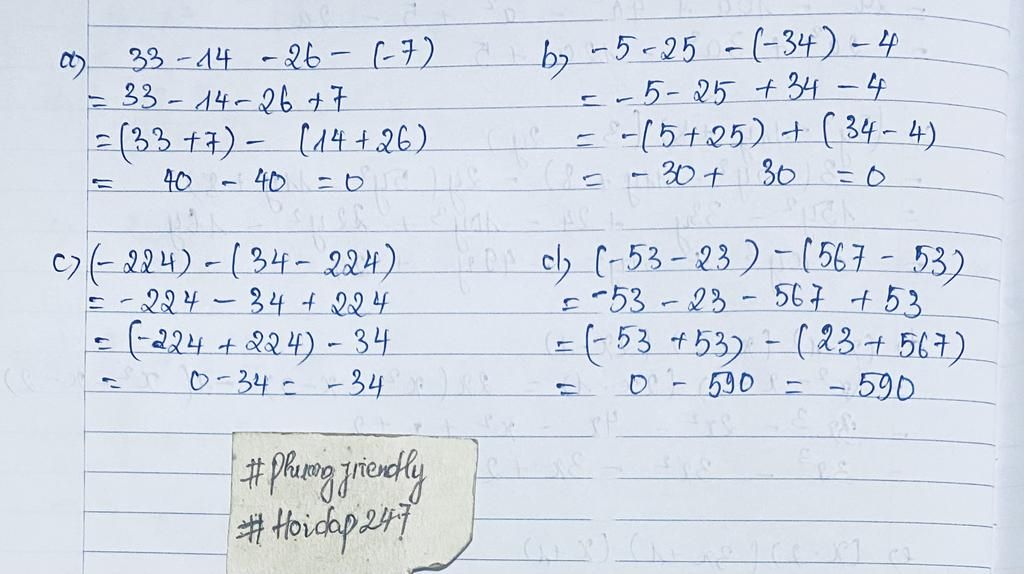 a) 33 - 14 - 26 - (-7)
= 33 - 14 - 26 + 7
= (33 + 7) - (14 + 26)
= 40 - 40 = 0
b) -5 - 25 - (-34) - 4
= -5 - 25 + 34 - 4
= -(5 + 25) + (34 - 4)
= -30 + 30 = 0
c) (-224) - (34 - 224)
= -224 - 34 + 224
= (-224 + 224) - 34
= 0 - 34 = -34
d) (-53 - 23) - (567 - 53)
= -53 - 23 - 567 + 53
= (-53 + 53) - (23 + 567)
= 0 - 590 = -590
# Phuongfriendly
# Hoidap247